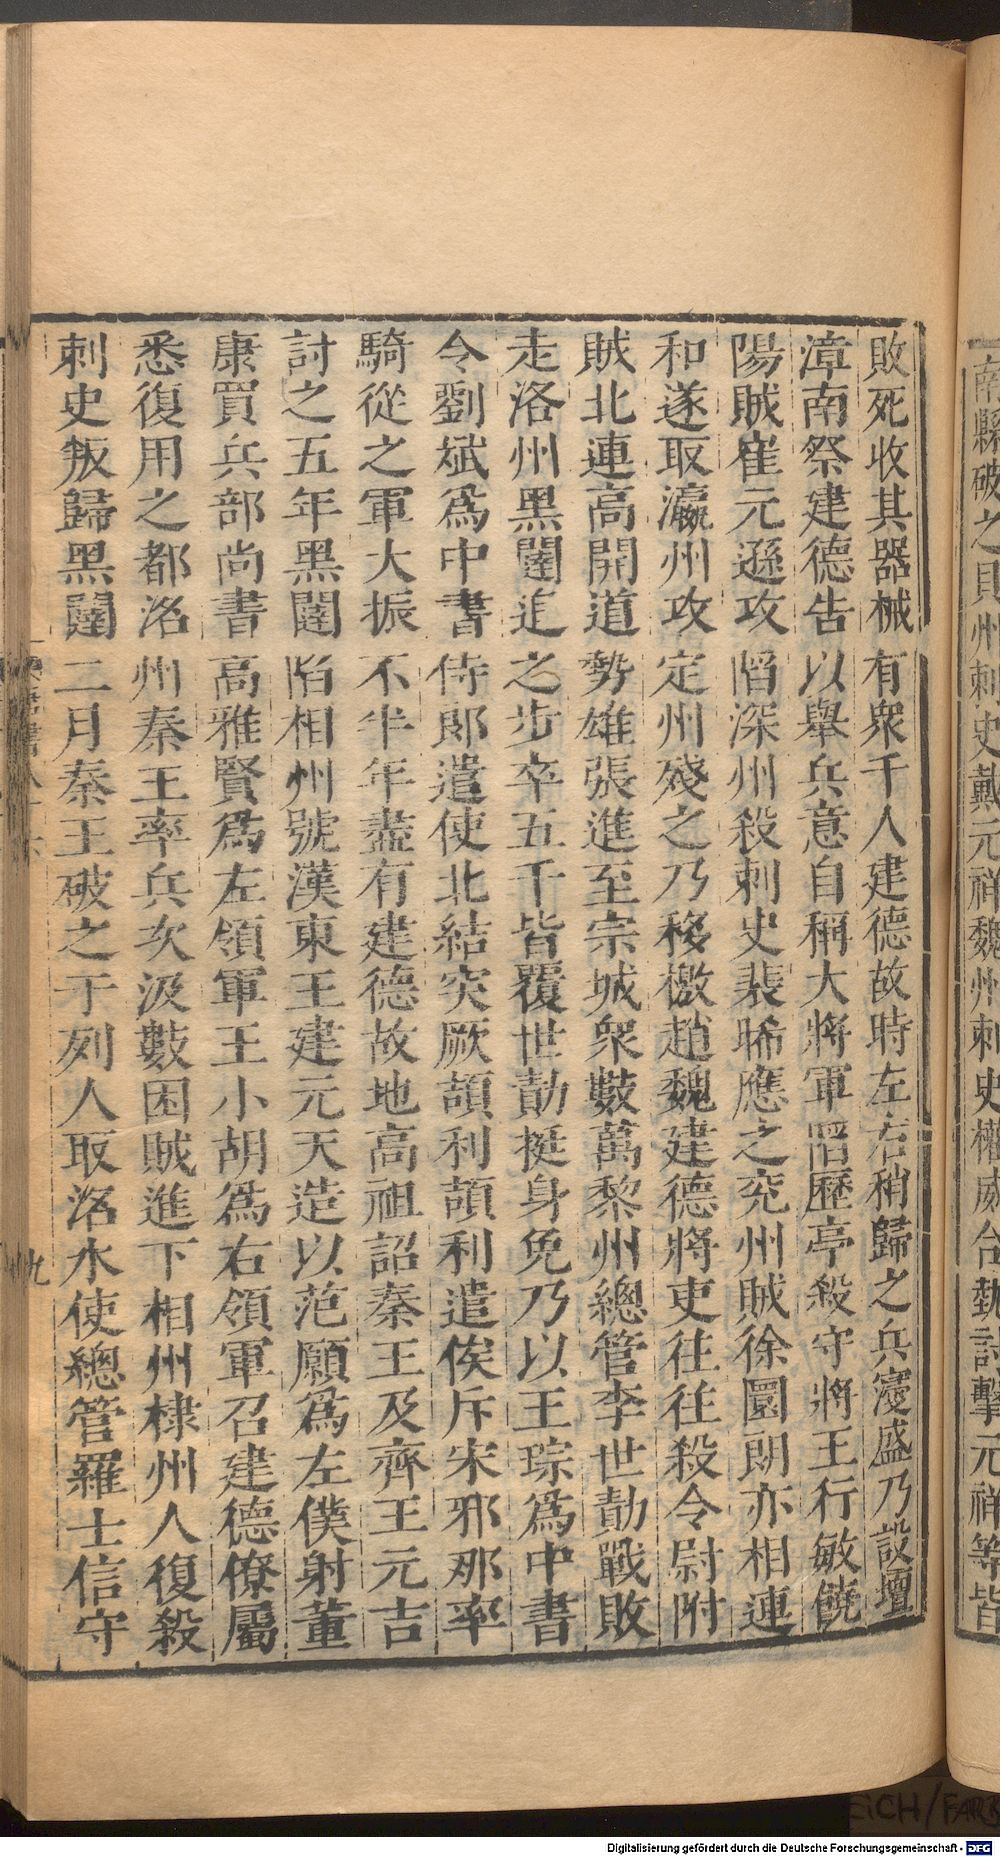 南縣破之貝州刺史戴元祥魏州刺史權威合勢討擊元祥等皆
敗死收其器械有衆千人建德故時左右稍歸之兵寖盛乃設壇
漳南祭建德告以舉兵意自稱大將軍陷歷亭殺守將王行敏饒
陽賊崔元遜攻陷深州殺刺史裴晞應之兖州賊徐圜朗亦相連
和遂取瀛州攻定州殘之乃移檄趙魏建德將吏往往殺令尉附
賊北連高開道勢雄張進至宗城衆數萬黎州總管李世勣戰敗
走洛州黑闥追之步卒五千皆覆世勣挺身免乃以王琮爲中書
令劉斌爲中書侍郎遣使北結突厥頡利頡利遣俟斥宋邪那率
騎從之軍大振不半年盡有建德故地高祖詔秦王及齊王元吉
討之五年黑闥陷相州號漢東王建元天造以范願爲左僕射董
康買兵部尚書高雅賢爲左領軍王小胡爲右領軍召建德僚屬
悉復用之都洛州秦王率兵次汲數困賊進下相州棣州人復殺
刺史叛歸黑闥二月秦王破之于列人取洛水使總管羅士信守
九
Digitalisierung gefördert durch die Deutsche Forschungsgemeinschaft - DFG